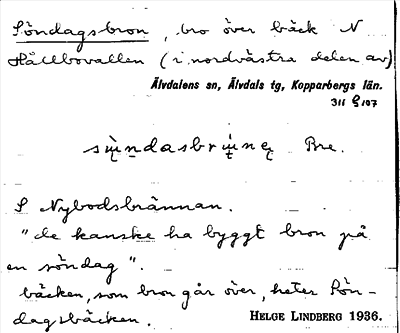 Söndagsbron, bro över bäck N
Hållbovallen (i nordvästra delen av)
Älvdalens sn, Älvdals tg, Kopparbergs län.
311 107
Bre.
S Nybodsbrännan.
"de kanske ha byggt bron på
en söndag".
bäcken, som bron går över, heter Sön-
dagsbäcken.
HELGE LINDBERG 1936.